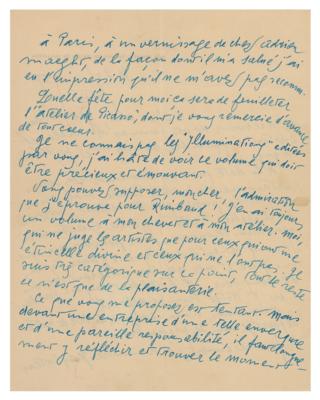 à Paris, à un vernissage de chez Adrien
Maeght, de la façon dont il m'a salué j'ai
eu l'impression qu'il ne m'avait pas reconnu.
Quelle fête pour moi ce sera de feuilleter
l'"atelier de Picasso", dont je vous remercie d'avance
de tout cœur.
Je ne connais pas les "Illuminations" éditées
par vous, j'ai hâte de voir ce volume, qui doit
être précieux et émouvant.
Vous pouvez supposer, mon cher, l'admiration
que j'éprouve pour Rimbaud, j'en ai toujours
un volume à mon chevet et à mon atelier. Moi,
qui ne juge les artistes que pour ceux qui ont une
étincelle divine et ceux qui ne l'ont pas. Je
suis très catégorique sur ce point, tout le reste
ce n'est que de la plaisanterie.
Ce que vous me proposez est tentant. Mais
devant une entreprise d'une telle envergure
et d'une pareille responsabilité, il faut longue-
ment y réfléchir et trouver le moment